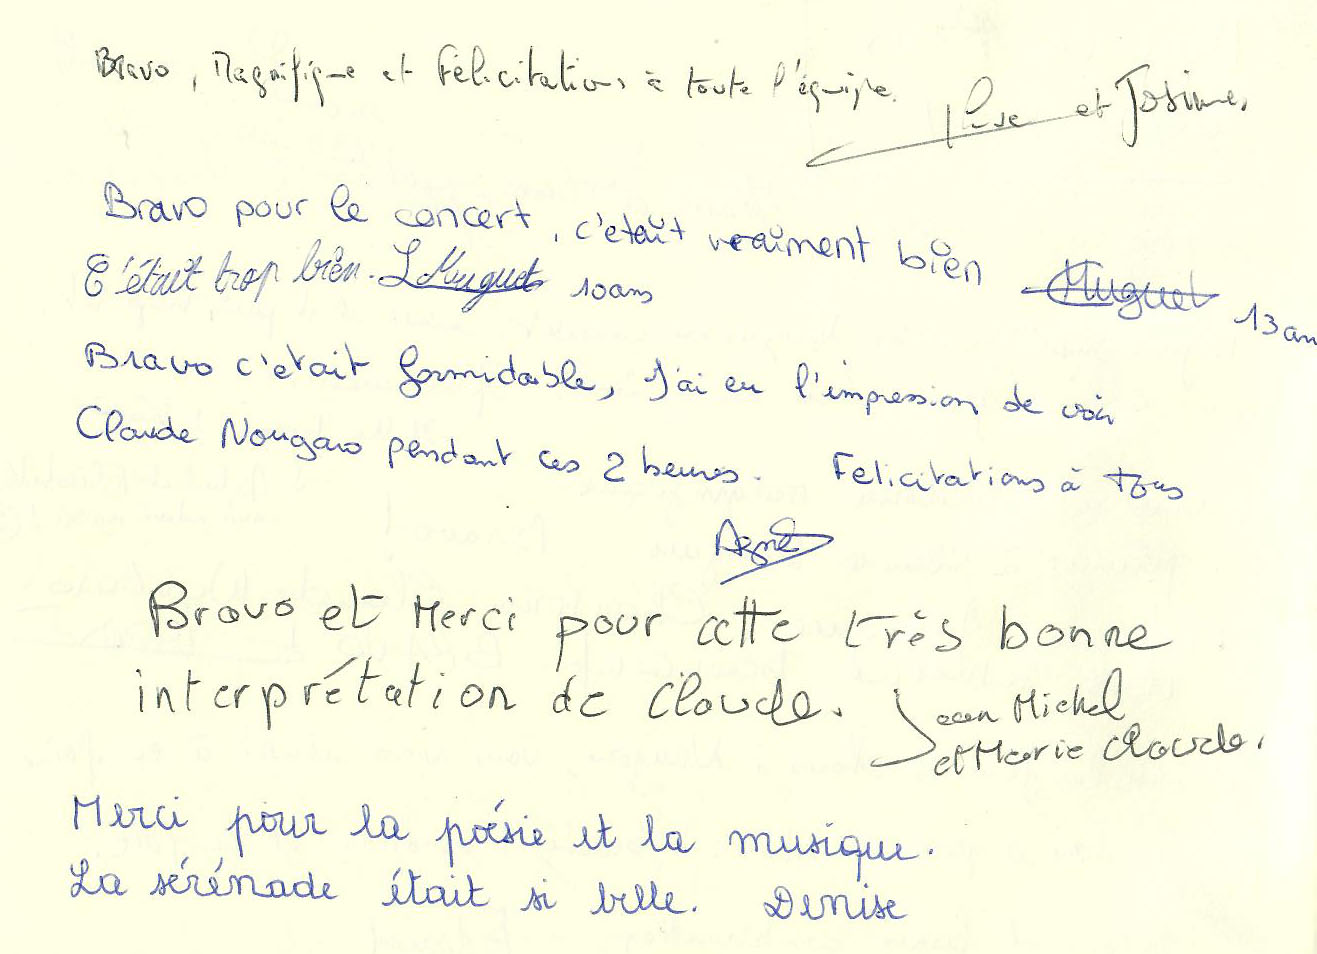 Bravo, Magnifique et Félicitations à toute l'équipe.
et Josiane.
Bravo pour le concert, c'etait vraiment bien
Muguet 13 an
C'était trop bien. L Muguet 10 ans
Bravo c'etait formidable, J'ai eu l'impression de voir
Claude Nougaro pendant ces 2 heures. Felicitations à tous
Agnès
Bravo et Merci pour cette très bonne
interprétation de Claude. Jean Michel
et Marie Claude.
Merci pour la poésie et la musique.
La sérénade était si belle. Denise